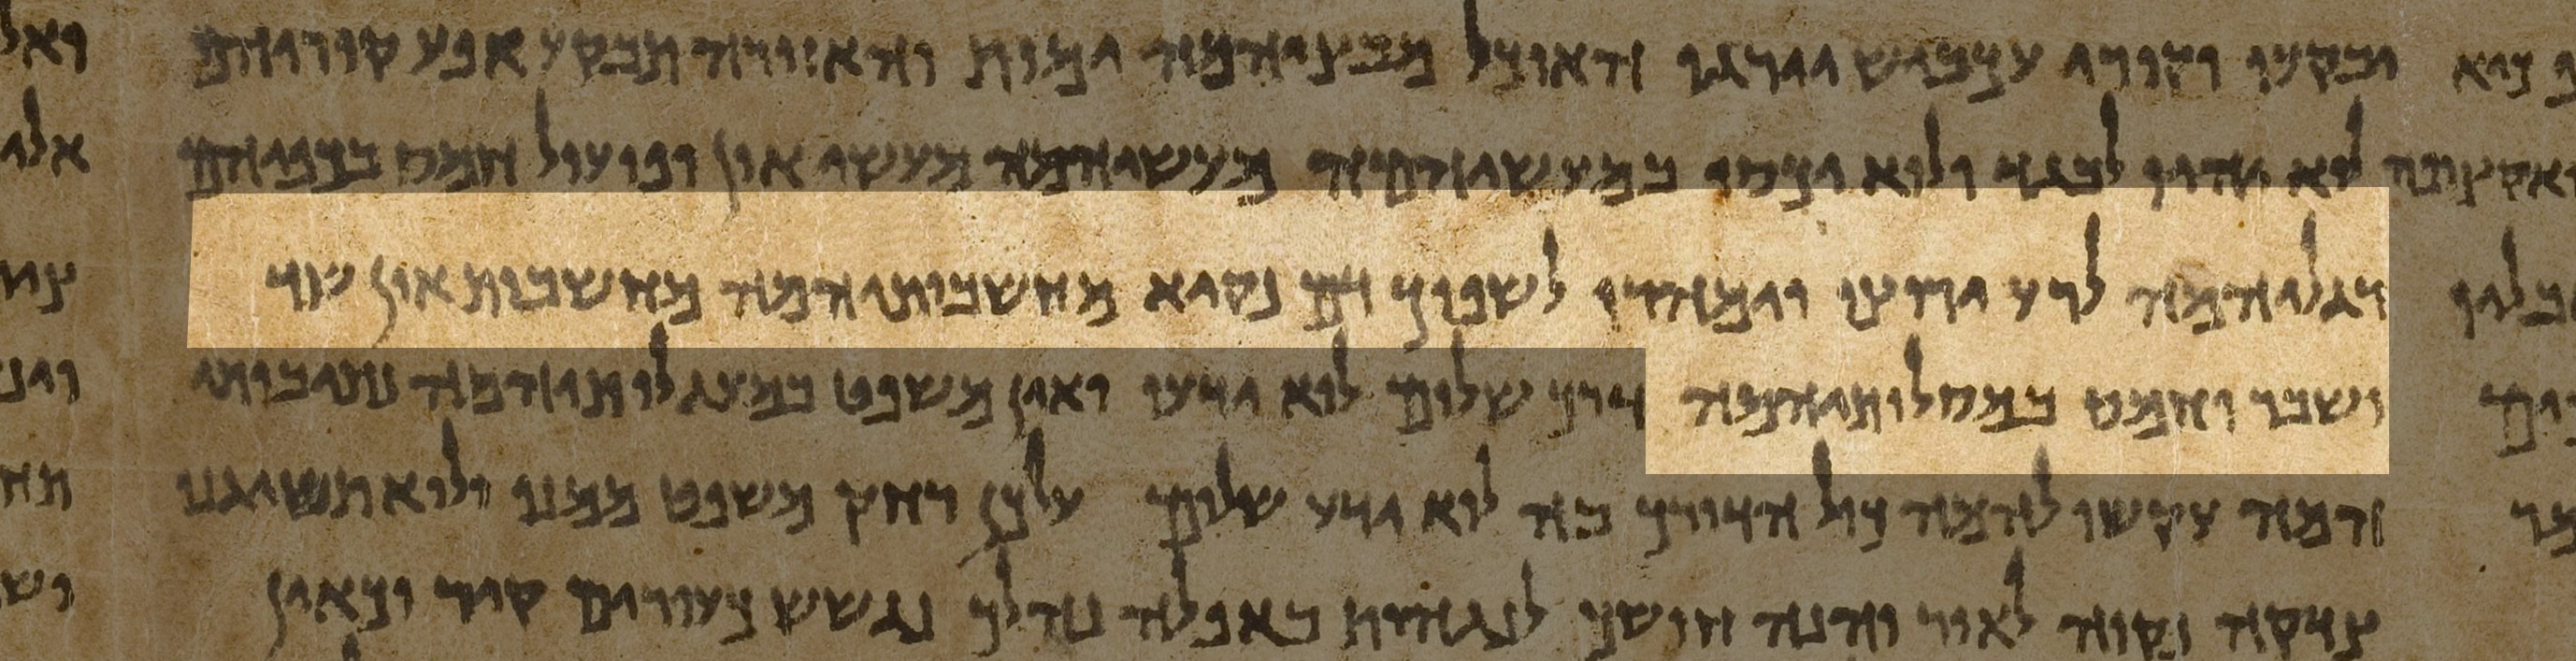 יבקעו וקורי עכביש יארגו האוכל מביציהמה ימות והאזורה תבקע אפע קוריהם
לוא יהיו לבגד ולוא יתכסו במעשיהמה מעשיהמה מעשי און ופועל חמס בכפיהם
רגליהמה לרע ירוצו וימהרו לשפוך דם נקיא מחשבותיהמה מחשבות און שוד
ושבר וחמס במסלותיהמה דרך שלום לוא ידעו ואין משפט במעגלותיהמה נתיבותי
המה עקשו להמה כול הדורך בה לוא ידע שלום עלכן רחק משפט ממנו ולוא תשיגנו
צדקה נקוה לאור והנה חושך לנגהות באפלה נהלך נגשש כעורים קיר וכאין